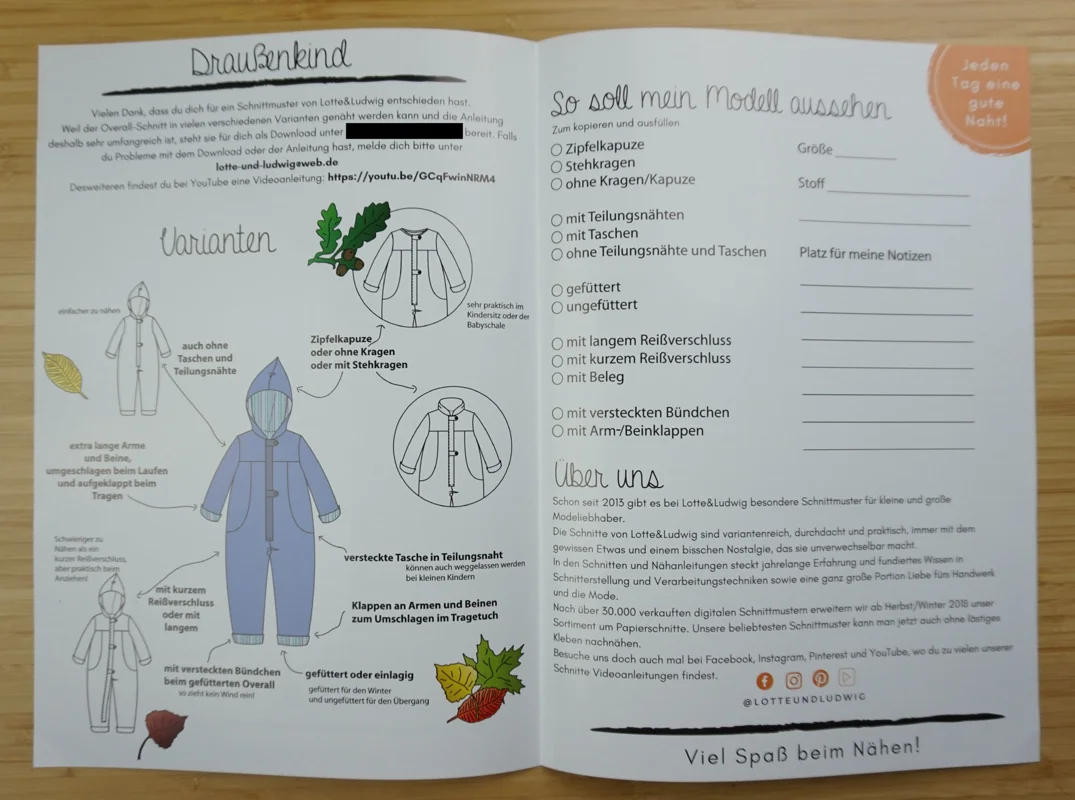 Draußenkind
Vielen Dank, dass du dich für ein Schnittmuster von Lotte&Ludwig entschieden hast.
Weil der Overall-Schnitt in vielen verschiedenen Varianten genäht werden kann und die Anleitung
deshalb sehr umfangreich ist, steht sie für dich als Download unter bereit. Falls
du Probleme mit dem Download oder der Anleitung hast, melde dich bitte unter
lotte-und-ludwig@web.de
Desweiteren findest du bei YouTube eine Videoanleitung: https://youtu.be/GCqFwinNRM4
Varianten
sehr praktisch im
Kindersitz oder der
Babyschale
einfacher zu nähen
auch ohne
Taschen und
Teilungsnähte
Zipfelkapuze
oder ohne Kragen
oder mit Stehkragen
extra lange Arme
und Beine,
umgeschlagen beim Laufen
und aufgeklappt beim
Tragen
Schwieriger zu
Nähen als ein
kurzer Reißverschluss,
aber praktisch beim
Anziehen!
versteckte Tasche in Teilungsnaht
können auch weggelassen werden
bei kleinen Kindern
mit kurzem
Reißverschluss
oder mit
langem
Klappen an Armen und Beinen
zum Umschlagen im Tragetuch
mit versteckten Bündchen
beim gefütterten Overall
so zieht kein Wind rein!
gefüttert oder einlagig
gefüttert für den Winter
und ungefüttert für den Übergang
Jeden
Tag eine
gute
Naht!
So soll mein Modell aussehen
Zum kopieren und ausfüllen
Zipfelkapuze
Stehkragen
ohne Kragen/Kapuze
mit Teilungsnähten
mit Taschen
ohne Teilungsnähte und Taschen
gefüttert
ungefüttert
mit langem Reißverschluss
mit kurzem Reißverschluss
mit Beleg
mit versteckten Bündchen
mit Arm-/Beinklappen
Größe
Stoff
Platz für meine Notizen
Über uns
Schon seit 2013 gibt es bei Lotte&Ludwig besondere Schnittmuster für kleine und große
Modeliebhaber.
Die Schnitte von Lotte&Ludwig sind variantenreich, durchdacht und praktisch, immer mit dem
gewissen Etwas und einem bisschen Nostalgie, das sie unverwechselbar macht.
In den Schnitten und Nähanleitungen steckt jahrelange Erfahrung und fundiertes Wissen in
Schnitterstellung und Verarbeitungstechniken sowie eine ganz große Portion Liebe fürs Handwerk
und die Mode.
Nach über 30.000 verkauften digitalen Schnittmustern erweitern wir ab Herbst/Winter 2018 unser
Sortiment um Papierschnitte. Unsere beliebtesten Schnittmuster kann man jetzt auch ohne lästiges
Kleben nachnähen.
Besuche uns doch auch mal bei Facebook, Instagram, Pinterest und YouTube, wo du zu vielen unserer
Schnitte Videoanleitungen findest.
@LOTTEUNDLUDWIG
Viel Spaß beim Nähen!